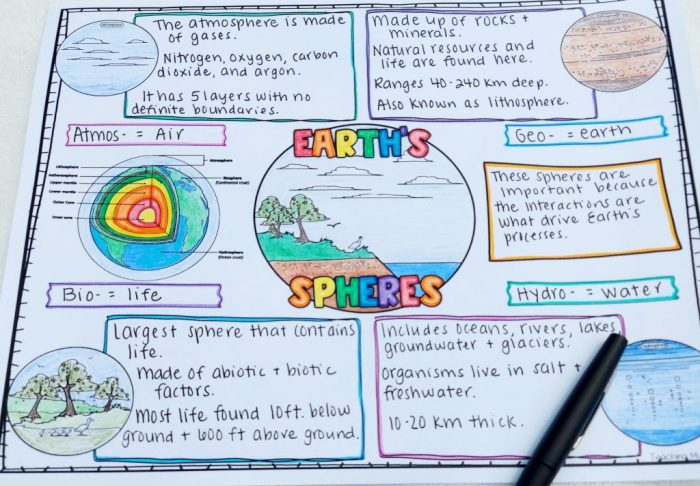 The atmosphere is made
of gases.
Nitrogen, oxygen, carbon
dioxide, and argon.
It has 5 layers with no
definite boundaries.
Made up of rocks +
minerals.
Natural resources and
life are found here.
Ranges 40-240 km deep.
Also known as lithosphere.
Atmos- = Air
EARTH'S
Geo- = earth
Atmosphere
Lithosphere
Asthenosphere
Upper mantle
Lower mantle
Outer Core
Inner core
Biosphere
(Continental crust)
Hydrosphere
(Ocean crust)
These spheres are
important because
the interactions are
what drive Earth's
processes.
SPHERES
Bio- = life
Hydro- = water
Largest sphere that contains
life.
made of abiotic + biotic
factors.
Most life found 10ft. below
ground + 600 ft above ground.
Includes oceans, rivers, lakes,
groundwater + glaciers.
Organisms live in salt +
freshwater.
10-20 km thick.
Teaching M